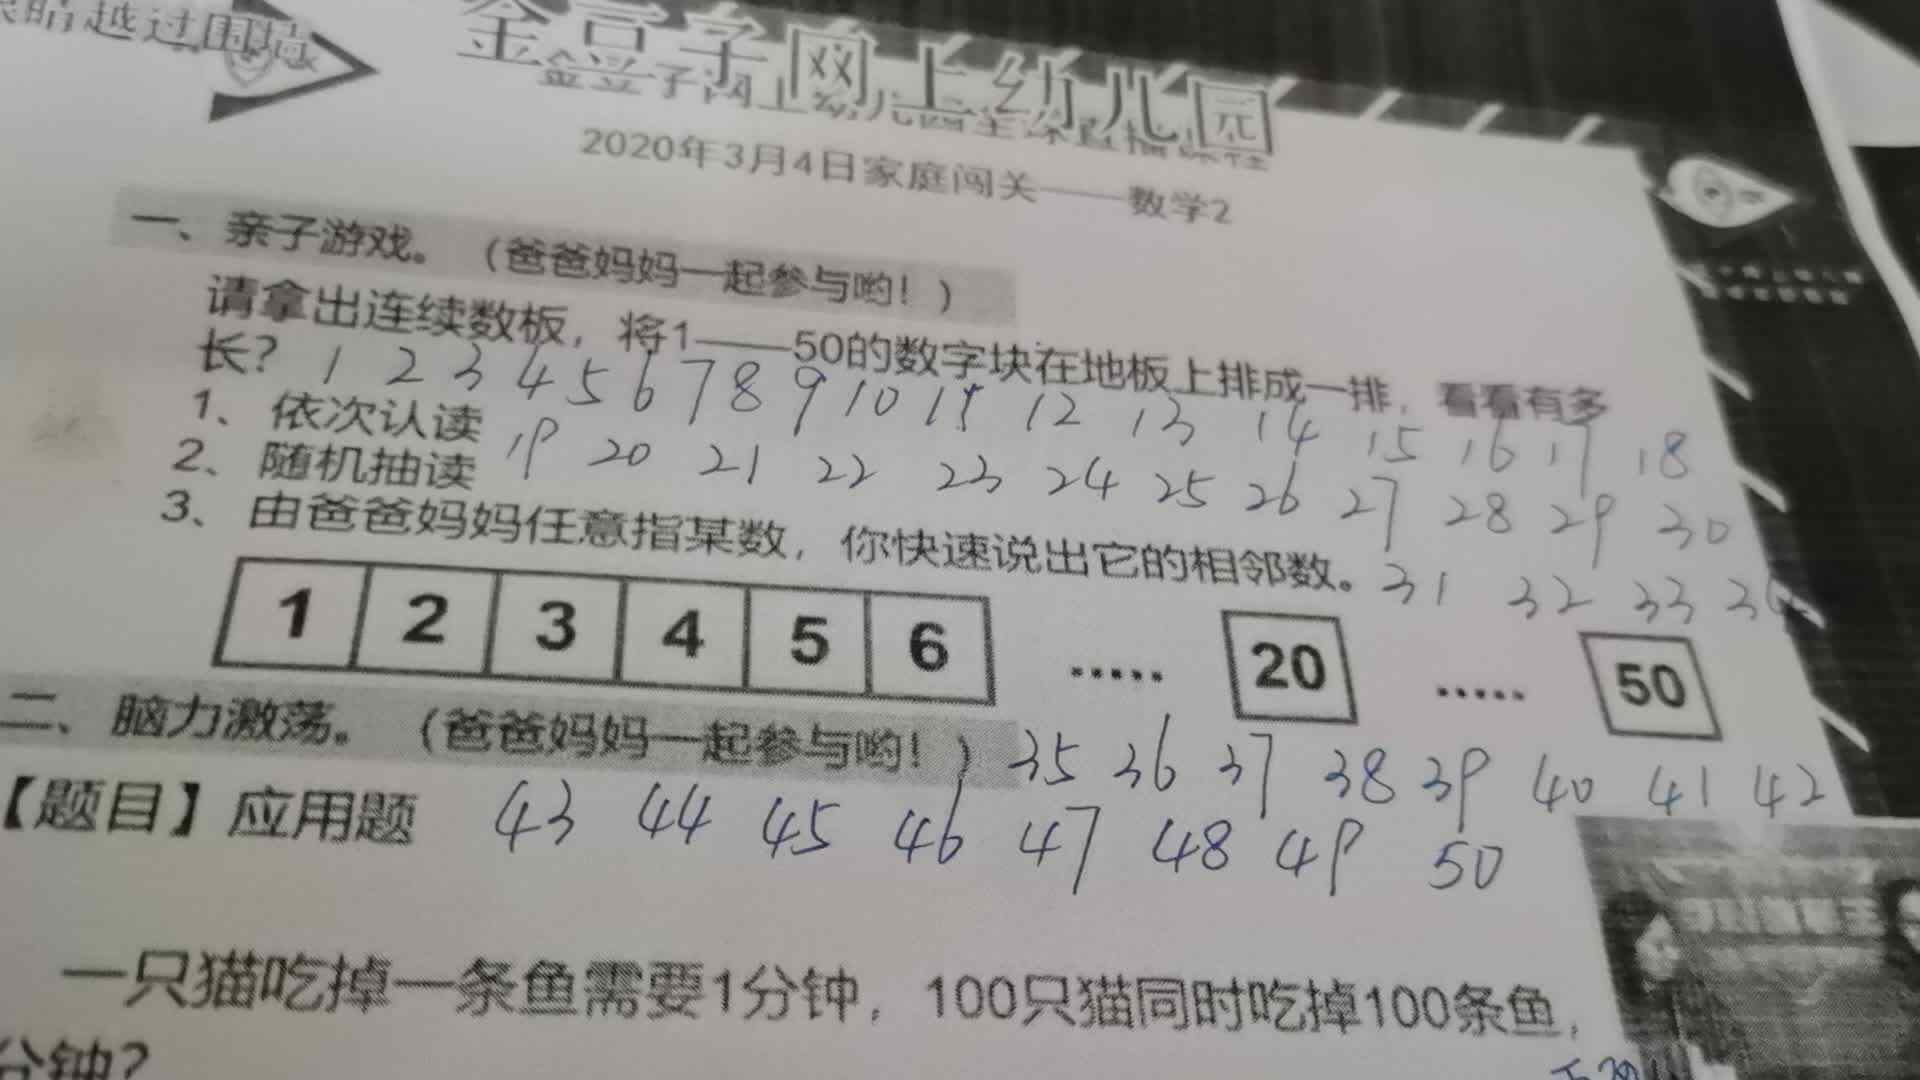 越过围墙
金豆子网上幼儿园
2020年3月4日家庭闯关——数学2
一、亲子游戏。（爸爸妈妈一起参与哟！）
请拿出连续数板，将1——50的数字块在地板上排成一排，看看有多
长？ 1 2 3 4 5 6 7 8 9 10 11 12 13 14 15 16 17 18
1、依次认读
19 20 21 22 23 24 25 26 27 28 29 30
2、随机抽读
3、由爸爸妈妈任意指某数，你快速说出它的相邻数。 31 32 33 34
1 2 3 4 5 6 ····· 20 ····· 50
二、脑力激荡。（爸爸妈妈一起参与哟！） 35 36 37 38 39 40 41 42
【题目】应用题 43 44 45 46 47 48 49 50
一只猫吃掉一条鱼需要1分钟，100只猫同时吃掉100条鱼，
分钟？